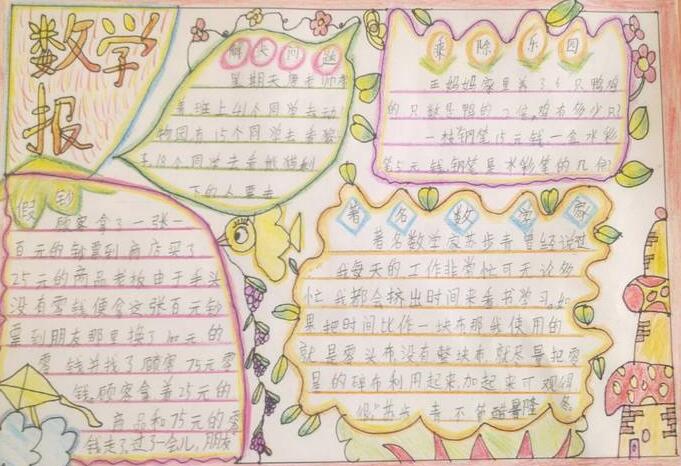 数学
报
解决问题
星期天唐老师带
着班上41个同学去动
物园有15个同学去看猴
子18个同学去看熊猫剩
下的人要去
乘除乐园
王妈妈家里养了5只鸭鸡
的只数是鸭的 倍,鸡有多少只
一枝钢笔15元钱一盒水彩
笔5元钱,钢笔是水彩笔的几倍
假钞
顾客拿了一张一
百元的钞票到商店买了
25元的商品老板由于手头
没有零钱便拿这张百元钞
票到朋友那里换了 元的
零钱并找了顾客75元零
钱,顾客拿着25元的
商品和75元的零
钱走了,过了一会儿,朋友
著名数学家
著名数学家苏步青曾经说过
我每天的工作非常忙可无论多
忙我都会挤出时间来看书学习,如
果把时间比作一块布那我使用的
就是零头布,没有整块布,就尽量把零
星的碎布利用起来,加起来可观